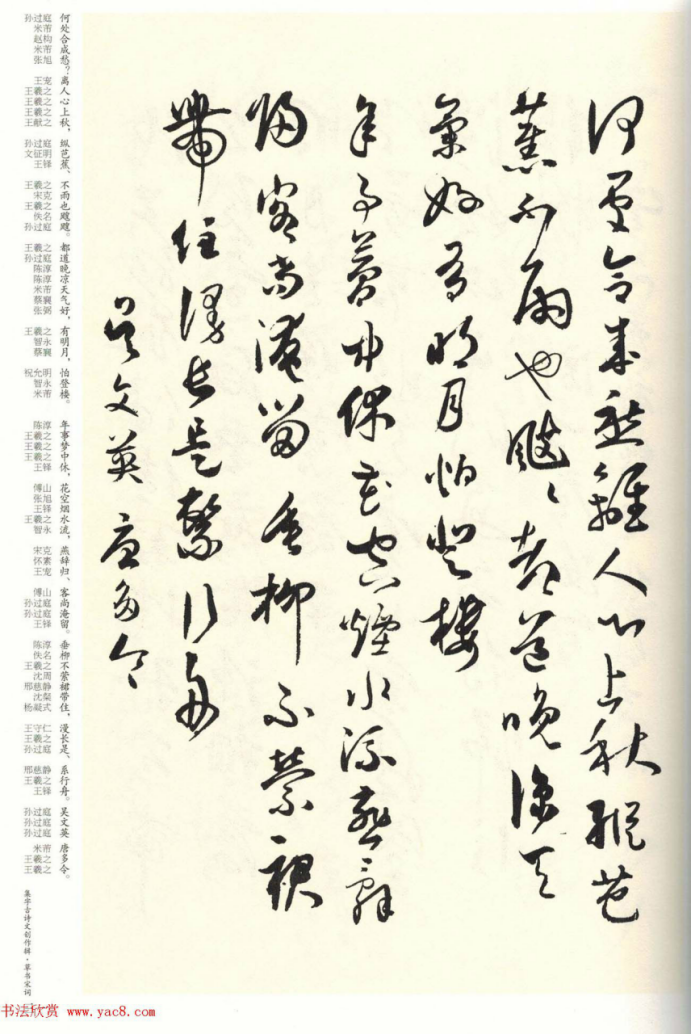 何處合成愁離人心上秋縱芭
蕉不雨也颼〻都道晚涼天
氣好有明月怕登樓
年事夢中休花空煙水流燕辭
歸客尚淹留垂柳不縈裙
帶住漫長是繫行舟
吳文英唐多令
何处合成愁？离人心上秋，纵芭蕉、不雨也飕飕。都道晚凉天气好，有明月，怕登楼。 年事梦中休，花空烟水流，燕辞归、客尚淹留。垂柳不萦裙带住，漫长是、系行舟。 吴文英 唐多令。
孙过庭 米芾 赵构 米芾 张旭 王宠 王羲之 王羲之 王羲之 王献之 孙过庭 文征明 王铎 王羲之 宋克 王羲之 佚名 孙过庭 王羲之 孙过庭 陈淳 陈淳 米芾 蔡襄 张弼 王羲之 智永 蔡襄 祝允明 智永 米芾 陈淳 王羲之 王羲之 王羲之 王铎 傅山 张旭 王铎 王羲之 智永 宋克 怀素 王宠 傅山 孙过庭 孙过庭 王铎 陈淳 佚名 王羲之 沈周 邢慈静 沈粲 杨凝式 王守仁 王羲之 孙过庭 邢慈静 王羲之 王铎 孙过庭 孙过庭 孙过庭 米芾 王羲之 王羲之
集字古诗文创作辑·草书宋词
书法欣赏 www.yac8.com